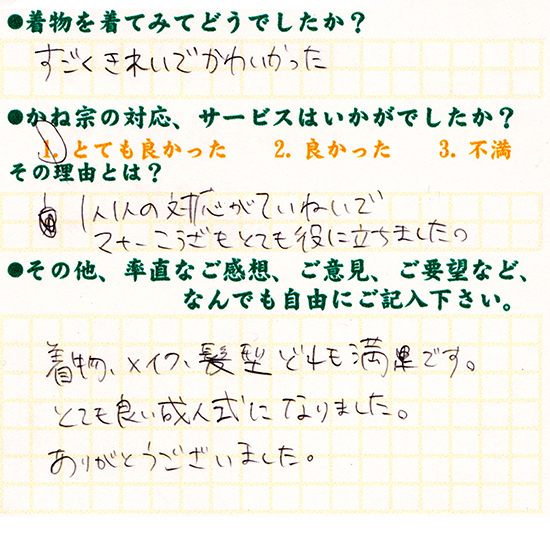 ●着物を着てみてどうでしたか？
すごくきれいでかわいかった
●かね宗の対応、サービスはいかがでしたか？
1. とても良かった 2. 良かった 3. 不満
その理由とは？
1人1人の対応がていねいで
マナーこうざもとても役に立ちました。
●その他、率直なご感想、ご意見、ご要望など、
なんでも自由にご記入下さい。
着物、メイク、髪型どれも満足です。
とても良い成人式になりました。
ありがとうございました。